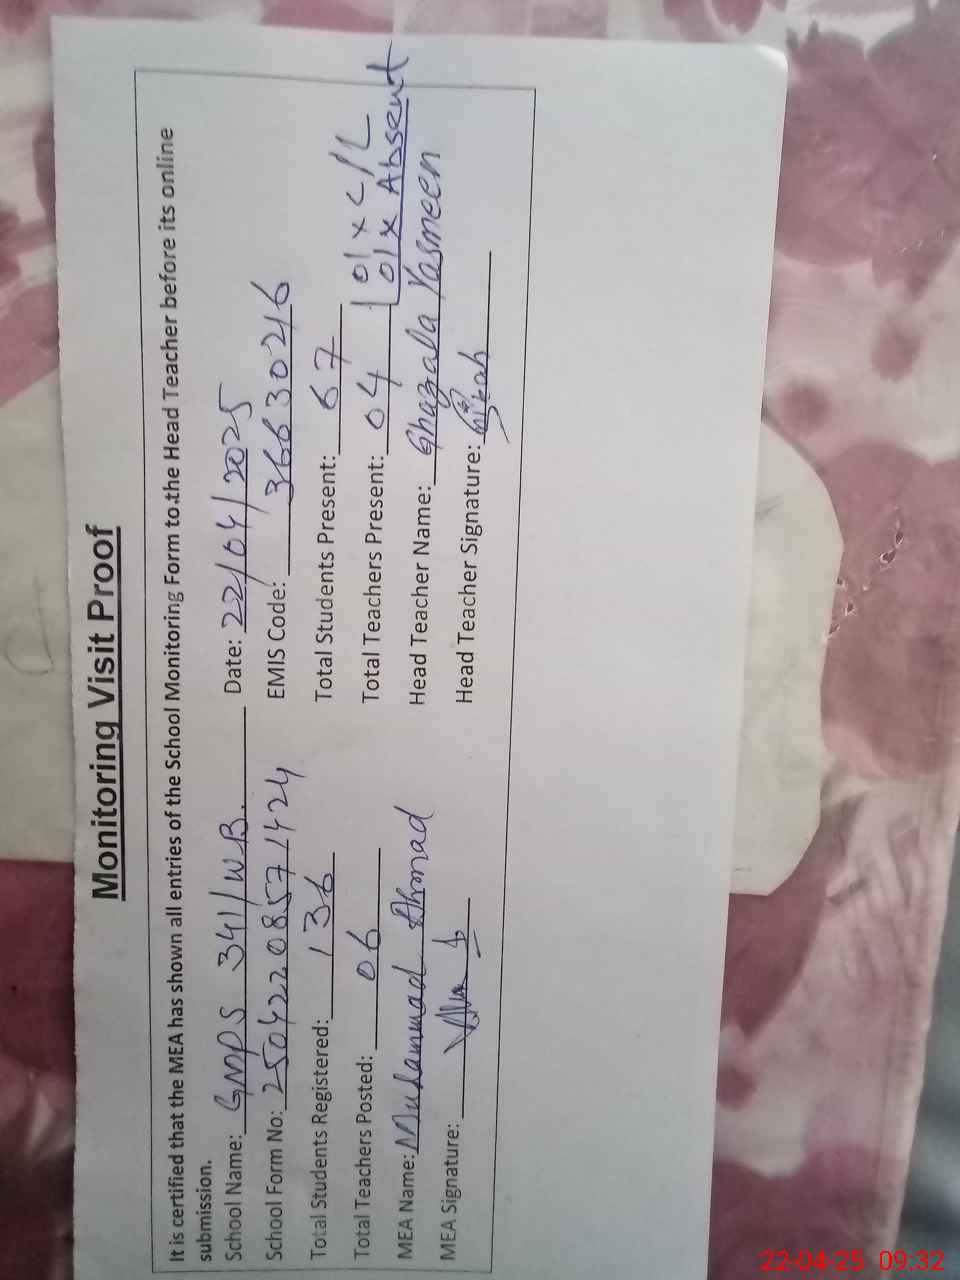 Monitoring Visit Proof
It is certified that the MEA has shown all entries of the School Monitoring Form to.the Head Teacher before its online
submission.
School Name: GMPS 341/WB. Date: 22/04/2025
School Form No: 25042208571424 EMIS Code: 36630216
Total Students Registered: 136 Total Students Present: 67
Total Teachers Posted: 06 Total Teachers Present: 04 01 x C/L
01 x Absent
MEA Name: Muhammad Ahmad Head Teacher Name: Ghazala Yasmeen
MEA Signature: Head Teacher Signature:
22-04-25 09:32